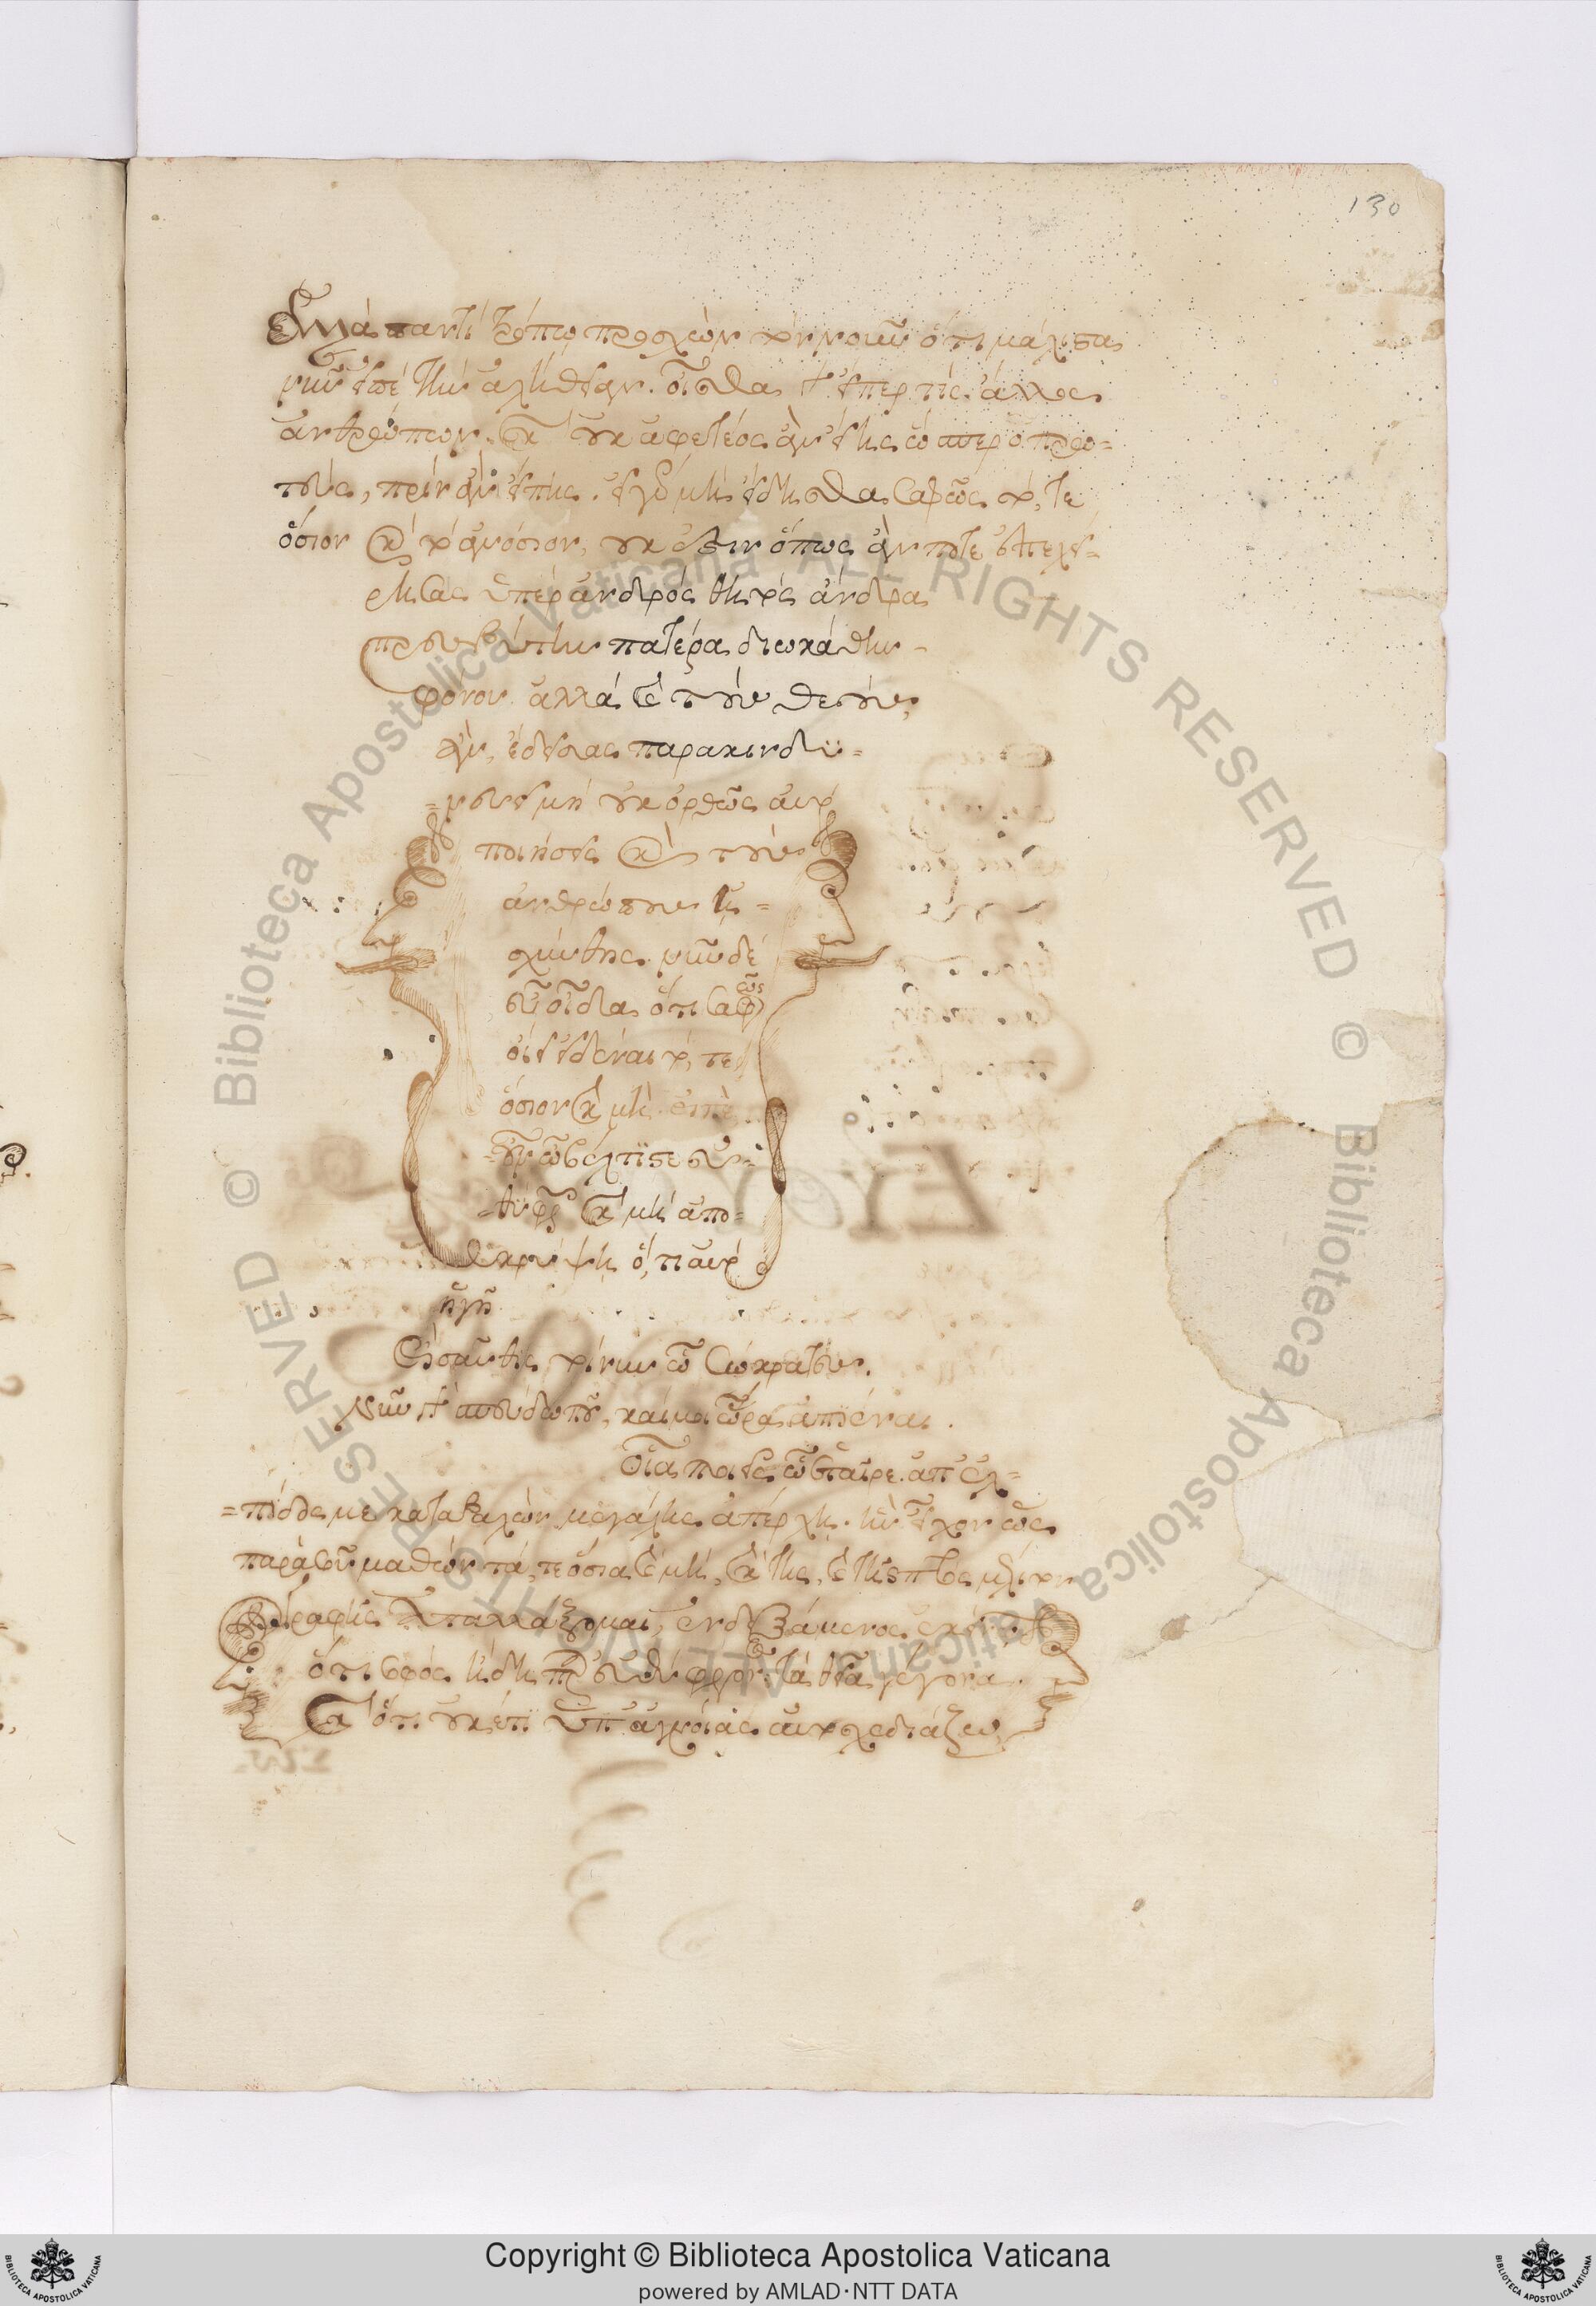 130
ἀλλὰ παντὶ τρόπῳ προσχὼν τὸν νοῦν ὅτι μάλιστα
νῦν εἰπὲ τὴν ἀλήθειαν. οἶσθα γὰρ εἴπερ τίς ἄλλος
ἀνθρώπων. καὶ οὐκ ἀφετέος ἂν εἴης ὥσπερ ὁ πρω=
τεύς, πρὶν ἂν εἴπης. εἰ γὰρ μὴ ἤδησθα σαφῶς τό, τε
ὅσιον καὶ τὸ ἀνόσιον, οὐκ ἔστιν ὅπως ἄν ποτε ἐπεχεί=
ρησας ὑπὲρ ἀνδρὸς θητὸς ἄνδρα
πρεσβύτην πατέρα διωκάθειν
φόνου. ἀλλὰ καὶ τοὺς θεοὺς
ἂν, ἔδεισας παρακινδυ=
=νεύειν μὴ οὐκ ὀρθῶς αὐτὸ
ποιήσεις καὶ τοὺς
ἀνθρώπους ἠ=
σχύνθης. νῦν δὲ
εὖ οἶδα ὅτι σαφῶς
οἴει εἰδέναι τό, τε
ὅσιον καὶ μή. εἰπὲ
οὖν ὦ βέλτιστε εὐ=
θύφρον καὶ μὴ ἀπο=
κρύψῃ ὅ, τι αὐτὸ
ἡγῇ
Εἰσαῦθις τοίνυν ὦ Σώκρατες.
νῦν γὰρ σπεύδω ποῦ, καί μοι ὥρα ἀπιέναι.
Οἷα ποιεῖς ὦ ἑταῖρε. ἀπ' ἐλ=
=πίδος με καταβαλὼν μεγάλης ἀπέρχῃ. ἣν εἶχον ὡς
παρὰ σοῦ μαθὼν τά, τε ὅσια καὶ μὴ, καὶ τῆς
γραφῆς ἀπαλλάξομαι, ἐνδειξάμενος ἐκείνῳ
ὅτι σοφὸς ἤδη παρ' εὐθύφρονος τὰ θεῖα γέγονα.
καὶ ὅτι οὐκέτι ὑπ' ἀγνοίας αὐτοσχεδιάζω
Copyright © Biblioteca Apostolica Vaticana
powered by AMLAD·NTT DATA